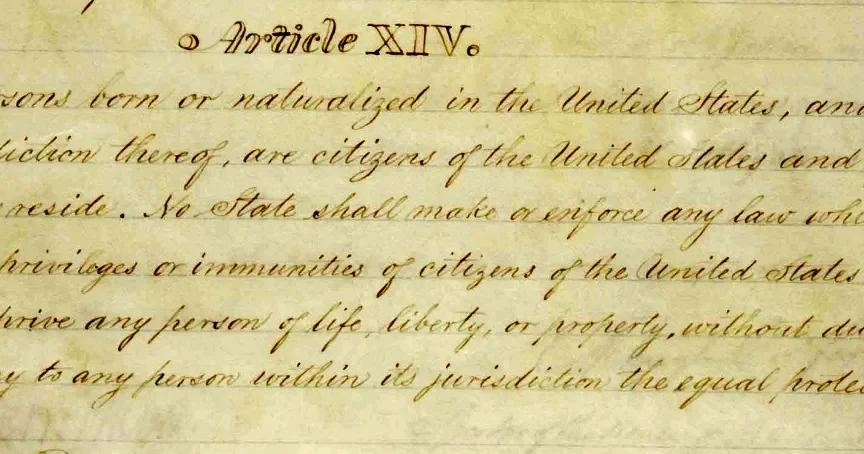 Article XIV.
sons born or naturalized in the United States, and
diction thereof, are citizens of the United States and
reside. No State shall make or enforce any law whi
privileges or immunities of citizens of the United States
prive any person of life, liberty, or property, without du
y to any person within its jurisdiction the equal protec